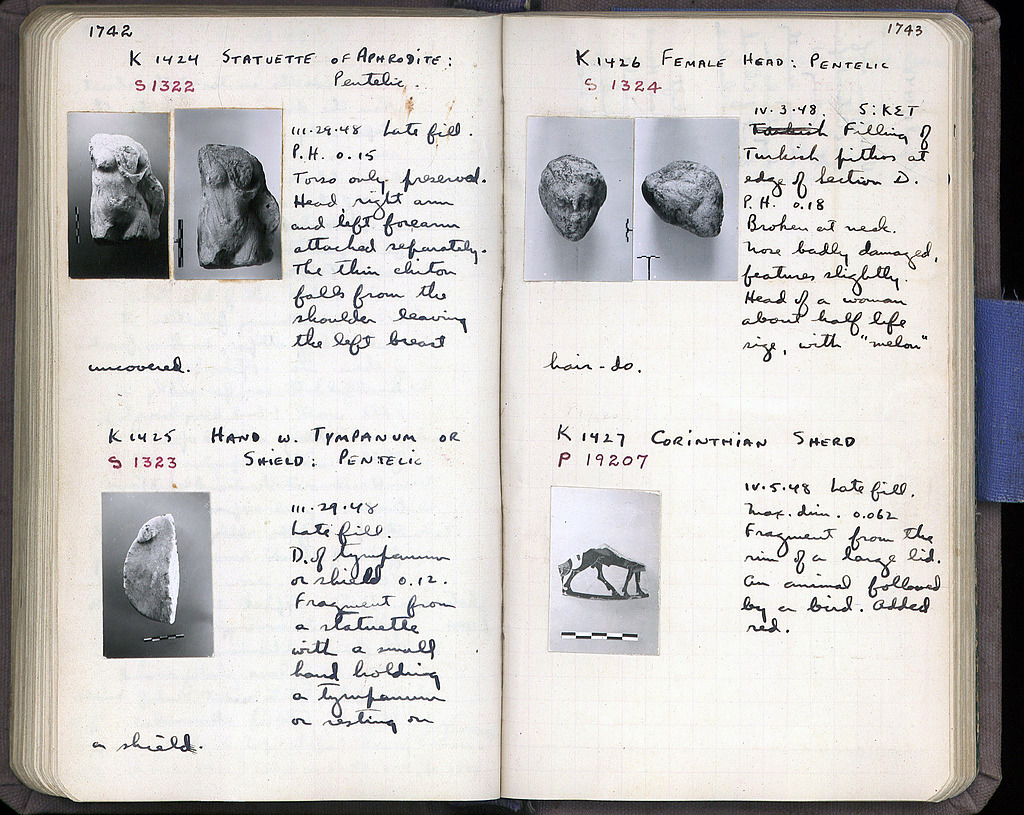 1742
K 1424 STATUETTE OF APHRODITE:
S 1322 Pentelic.
III.29.48 Late fill.
P.H. 0.15
Torso only preserved.
Head right arm
and left forearm
attached separately.
The thin chiton
falls from the
shoulder leaving
the left breast
uncovered.
K 1425 HAND W. TYMPANUM OR
S 1323 SHIELD: PENTELIC
III.29.48
Late fill.
D. of tympanum
or shield 0.12.
Fragment from
a statuette
with a small
hand holding
a tympanum
or resting on
a shield.
1743
K 1426 FEMALE HEAD: PENTELIC
S 1324
IV.3.48. S:KET
Turkish Filling of
Turkish pithos at
edge of Section D.
P.H. 0.18
Broken at neck.
Nose badly damaged,
features slightly.
Head of a woman
about half life
size, with "melon"
hair-do.
K 1427 CORINTHIAN SHERD
P 19207
IV.5.48 Late fill.
Max. dim. 0.062
Fragment from the
rim of a large lid.
An animal followed
by a bird. Added
red.